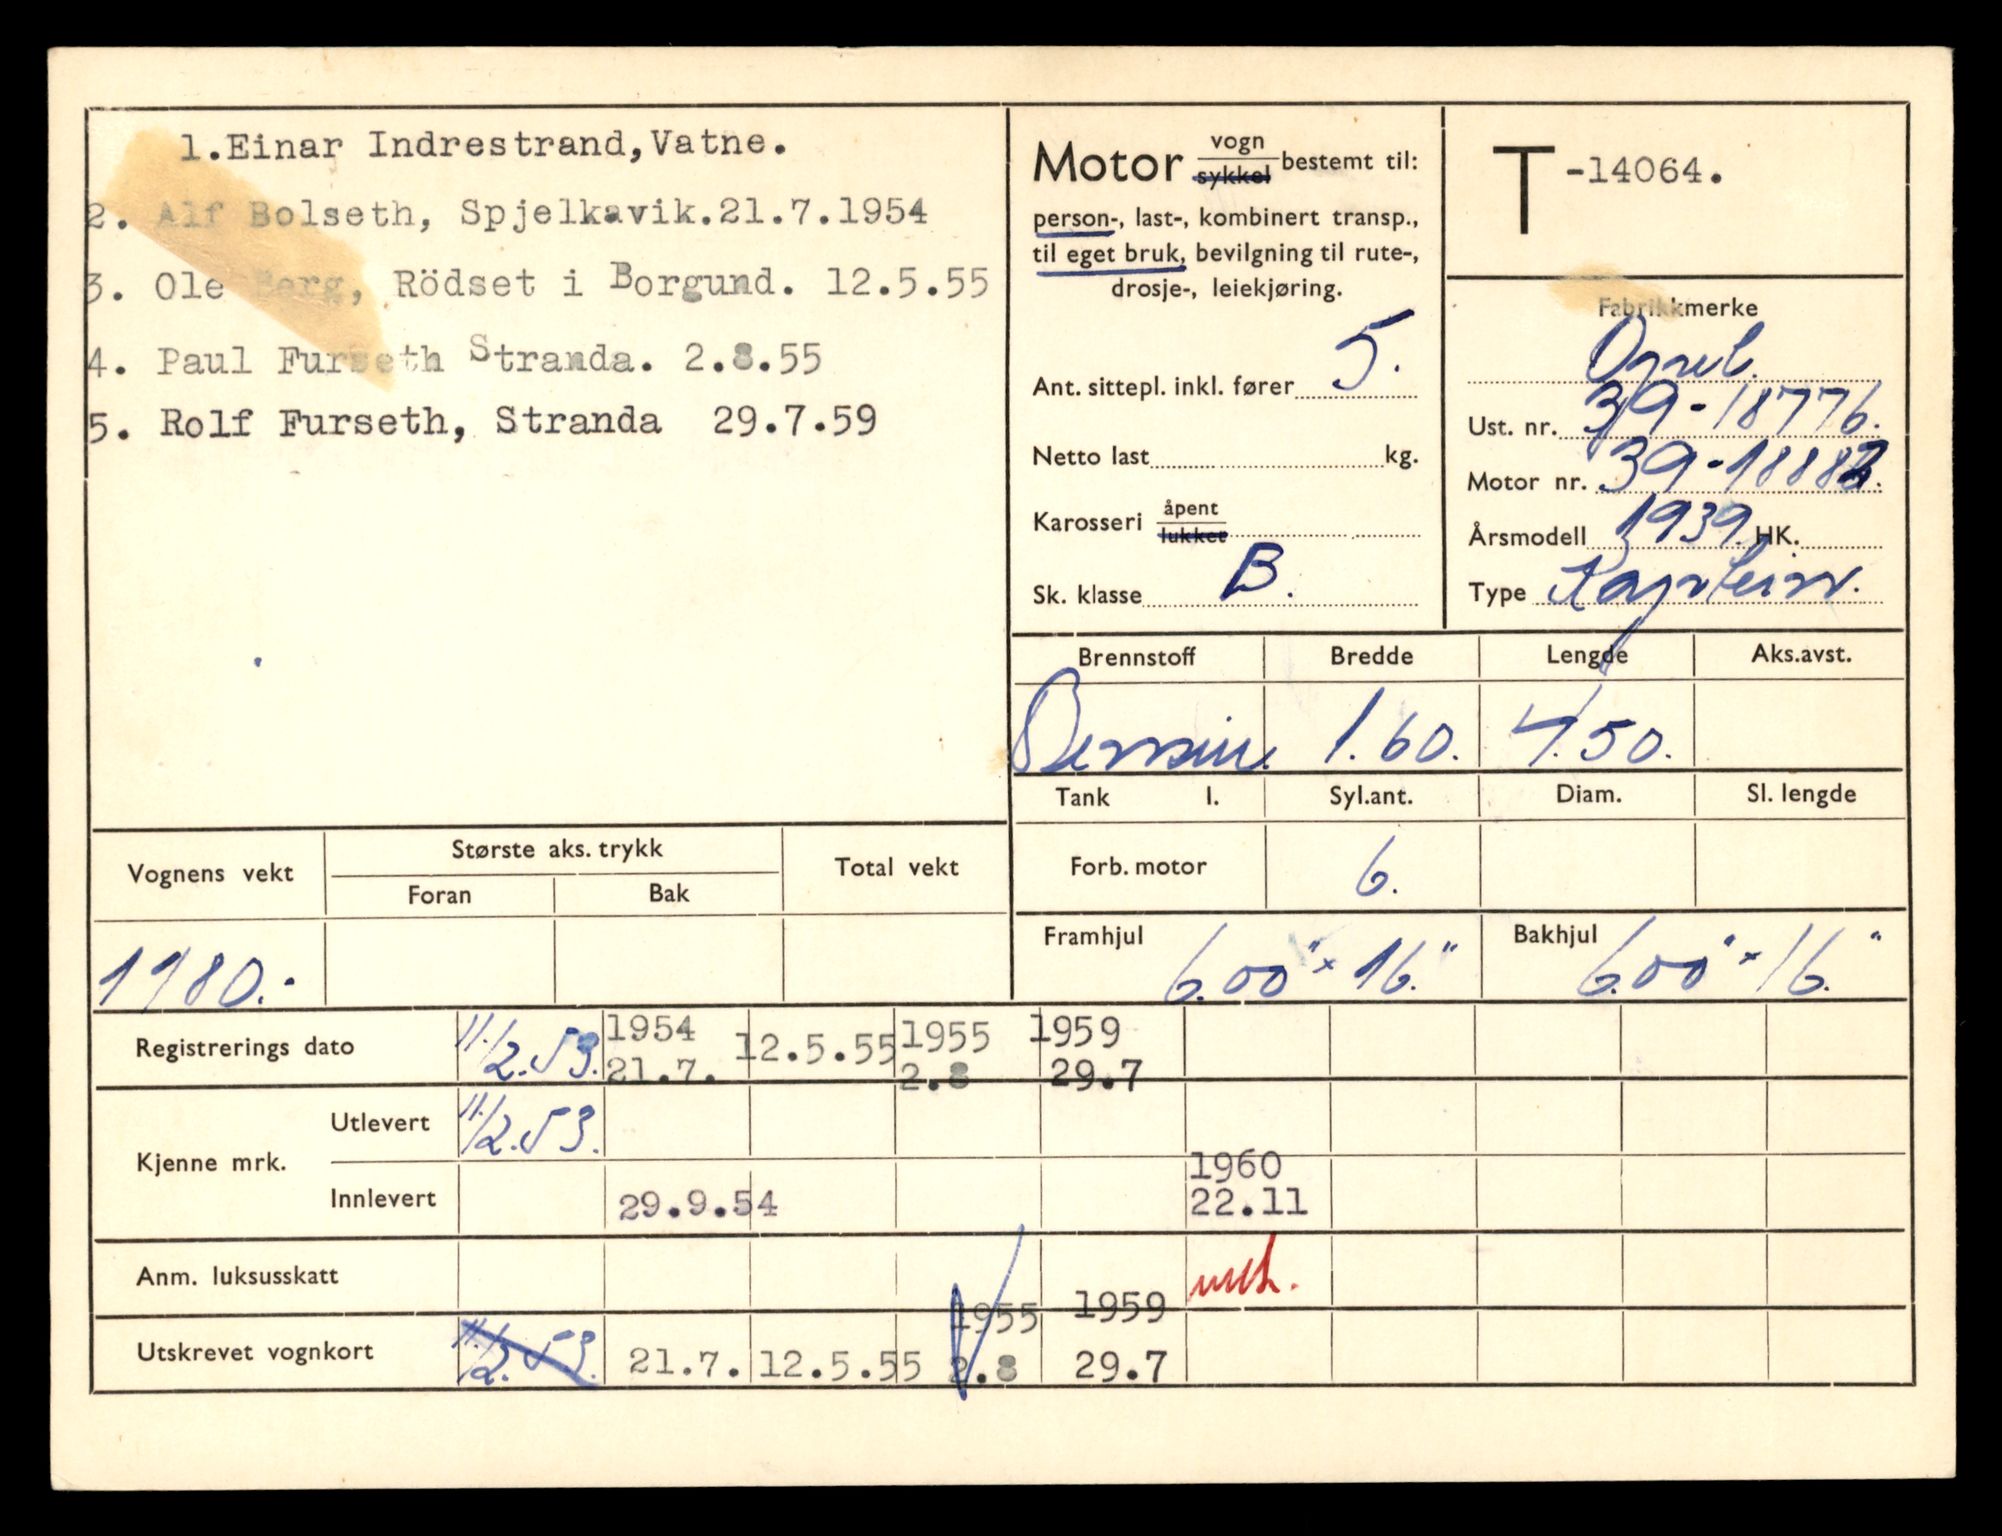 1.Einar Indrestrand,Vatne.
2. Alf Bolseth, Spjelkavik.21.7.1954
3. Ole Berg, Rödset i Borgund. 12.5.55
4. Paul Furseth Stranda. 2.8.55
5. Rolf Furseth, Stranda 29.7.59
Motor vogn sykkel bestemt til:
person-, last-, kombinert transp.,
til eget bruk, bevilgning til rute-,
drosje-, leiekjøring.
Ant. sittepl. inkl. fører 5.
Netto last kg.
Karosseri åpent lukket
Sk. klasse B.
T -14064.
Fabrikkmerke
Opel.
Ust. nr. 39-18776.
Motor nr. 39-1888
Årsmodell 1939. HK.
Type Kaptein.
Brennstoff Bredde Lengde Aks.avst.
Bensin. 1.60. 4.50.
Tank l. Syl.ant. Diam. Sl. lengde
Forb. motor 6.
Framhjul 6.00" x 16." Bakhjul 6.00" x 16."
Vognens vekt Største aks. trykk Total vekt
Foran Bak
1180.-
Registrerings dato 11./2.53. 1954 21.7. 12.5.55 1955 2.8 1959 29.7
Kjenne mrk.
Utlevert 11./2.53.
Innlevert 29.9.54 1960 22.11
Anm. luksusskatt
Utskrevet vognkort 11./2.53. 21.7. 12.5.55 1955 2.8 1959 29.7